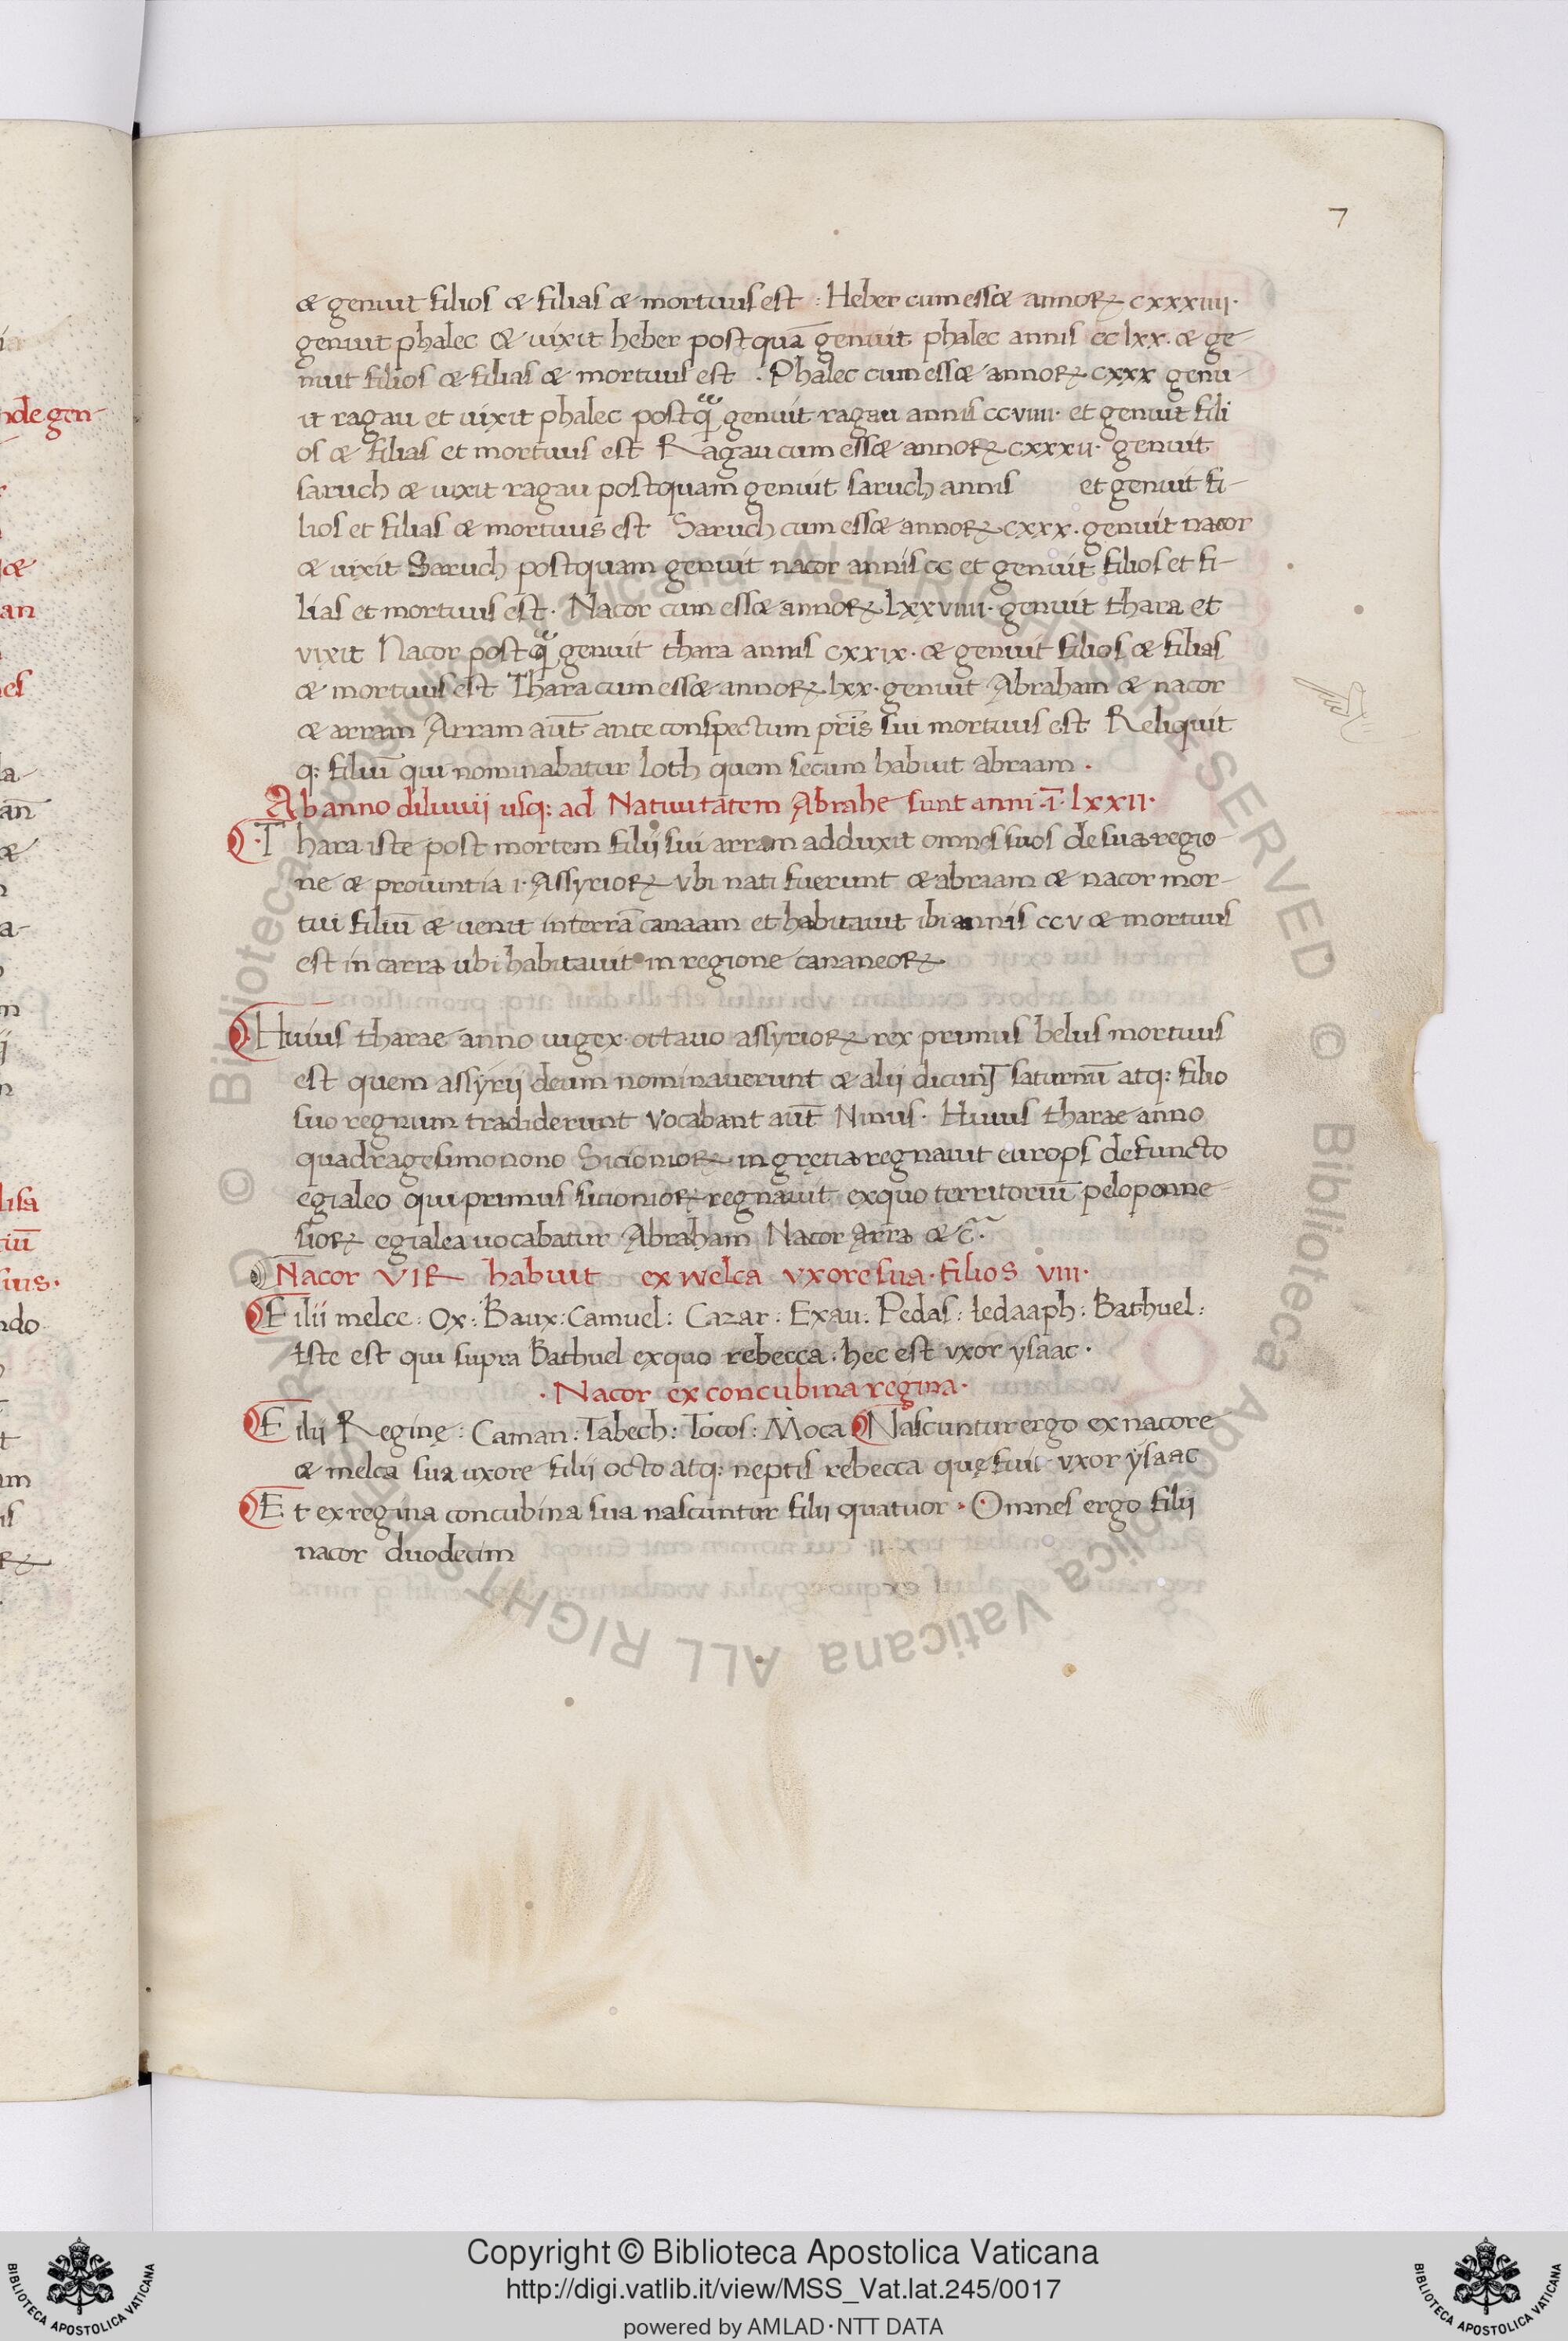 7
& genuit filios & filias & mortuus est : Heber cum ess& annoꝝ cxxxiiii·
genuit phalec & uixit heber postquā genuit phalec annis cclxx. & ge-
nuit filios & filias & mortuus est . Phalec cum ess& annoꝝ cxxx genu-
it ragau et uixit phalec postq̄ genuit ragau annis ccviiii· et genuit fili
os & filias et mortuus est Ragau cum ess& annoꝝ cxxxii· genuit
saruch & uixit ragau postquam genuit saruch annis et genuit fi-
lios et filias & mortuus est Saruch cum ess& annoꝝ cxxx. genuit nacor
& uixit Saruch postquam genuit nacor annis cc et genuit filios et fi-
lias et mortuus est. Nacor cum ess& annoꝝ lxxviiii· genuit thara et
vixit Nacor postq̄ genuit thara annis cxxix. & genuit filios & filias
& mortuus est Thara cum ess& annoꝝ lxx. genuit Abraham & nacor
& arram Arram aūt ante conspectum pr̄is sui mortuus est Reliquit
q: filiū qui nominabatur loth quem secum habuit abraam .
Ab anno diluuij usq: ad Natiuitatem Abrahe sunt anni ·ī· lxxii·
Thara iste post mortem filij sui arram adduxit omnes suos de sua regio-
ne & prouintia i· Assyrioꝝ vbi nati fuerunt & abraam & nacor mor-
tui filiū & uenit in terrā canaam et habitauit ibi annis ccv & mortuus
est in carra ubi habitauit in regione cananeoꝝ
Huius tharae anno uigex· ottauo assyrioꝝ rex primus belus mortuus
est quem assyrij deum nominauerunt & alij dicunt saturnū atq: filio
suo regnum tradiderunt vocabant aūt Ninus· Huius tharae anno
quadragesimo nono Sicionioꝝ in gretia regnauit europs defuncto
egialeo qui primus sicionioꝝ regnauit exquo territoriū peloponne
sioꝝ egialea uocabatur Abraham Nacor Arra & c̄·
Nacor VIR habuit ex welca vxore sua · filios viii·
Filii melce : Ox : Baux : Camuel : Cazar : Exau : Pedas : ledaaph : Bathuel :
Iste est qui supra Bathuel exquo rebecca . hec est vxor ysaac ·
· Nacor ex concubina regina ·
Filii Reginę : Caman : Tabech : Tocos : Moca Nascuntur ergo ex nacore
& melca sua uxore filii octo atq: neptis rebecca quę fuit vxor ysaac
Et ex regina concubina sua nascuntur filii quatuor · Omnes ergo filii
nacor duodecim
Copyright © Biblioteca Apostolica Vaticana
http://digi.vatlib.it/view/MSS_Vat.lat.245/0017
powered by AMLAD·NTT DATA